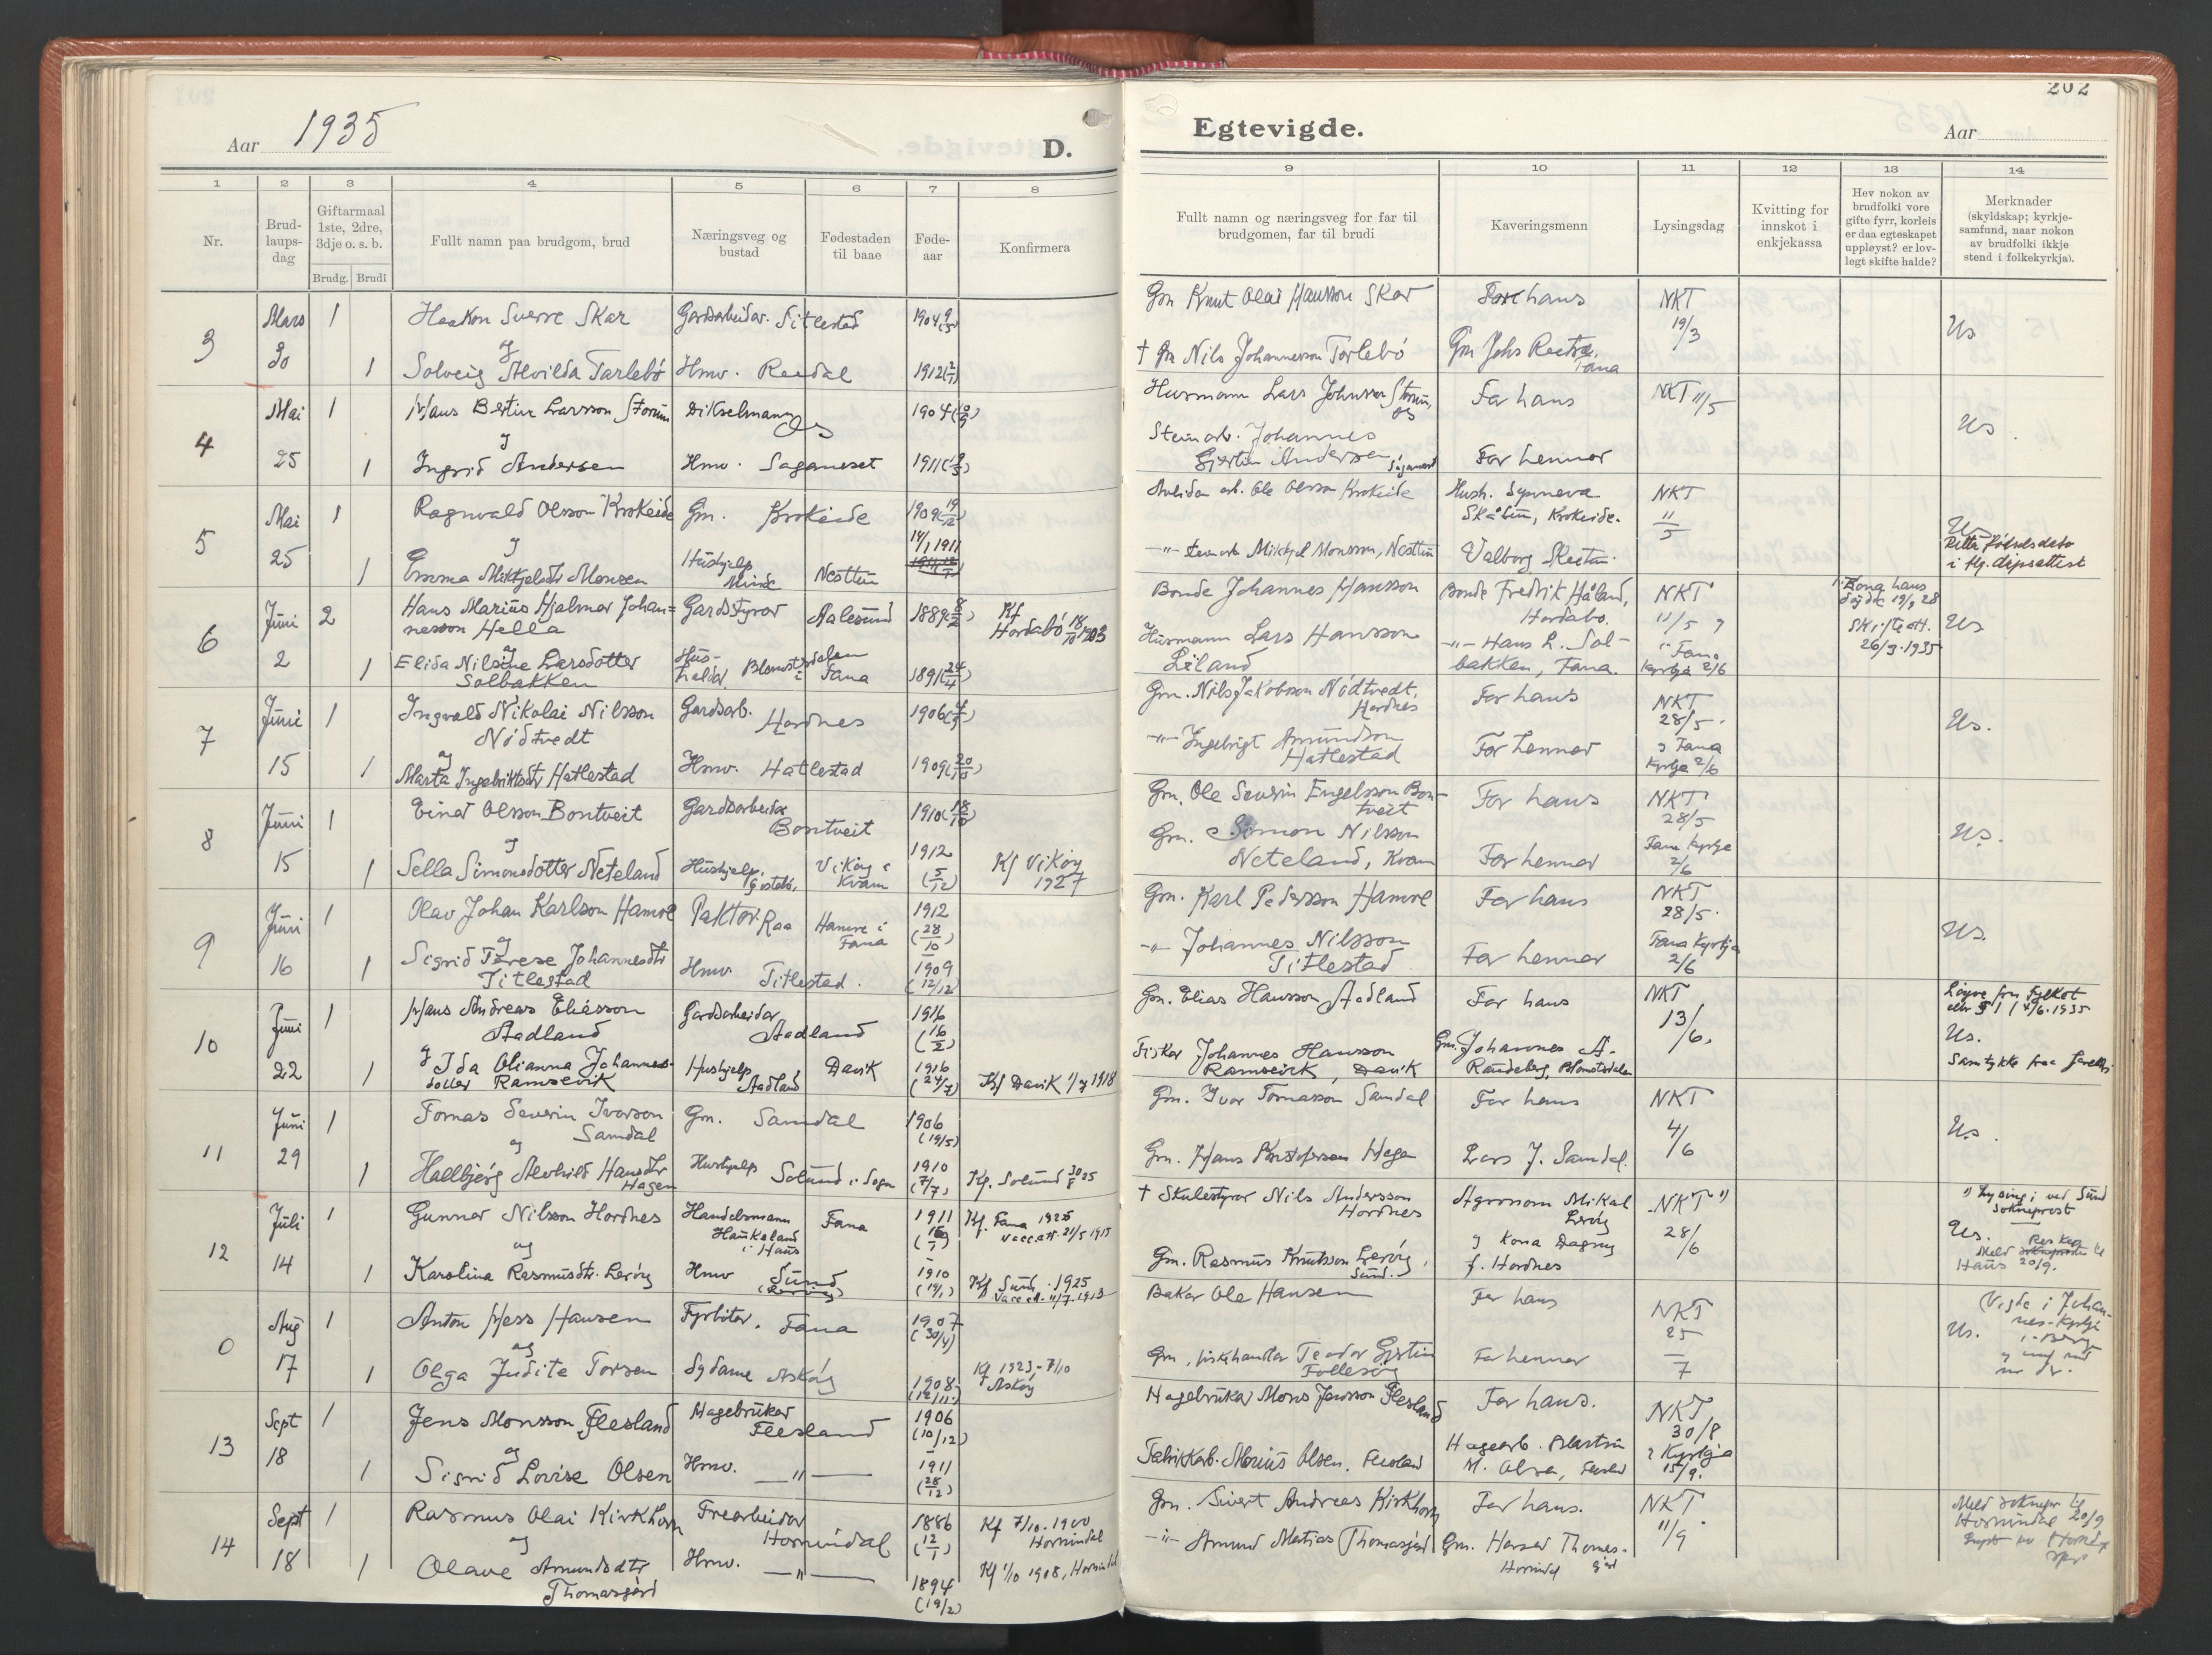 Aar 1935
D.
1 2 3 4 5 6 7 8
Nr.
Brud-
laups-
dag
Giftarmaal
1ste, 2dre,
3dje o. s. b.
Brudg. Brudi
Fullt namn paa brudgom, brud
Næringsveg og
bustad
Fødestaden
til baae
Føde-
aar
Konfirmera
3 Mars 30
1 Haakon Sverre Skar Gardsarbeidar. Titlestad 1904
og
1 Solveig Alvilda Tarlebø Hmv. Reedal 1912
4 Mai 25
1 Hans Bertin Larsson Storum Dikselmann Os 1904
og
1 Ingrid Andersen Hmv. Saganeset 1911
5 Mai 25
1 Ragnvald Olsson Krokeide Gm. Krokeide 1909
og 14/1 1911
1 Emma Mikkjelsdtr Monsen Hushjelp Minde Nesttun
6 Juni 2
2 Hans Marius Hjalmar Johan=
nesson Hella Gardstyrar Aalesund 1889 Kf Hordabø 18/10 1903
og
1 Elida Nilsine Larsdotter
Solbakken Hus-
haldar, Blomsterdalen i Fana 1891 (24/4)
7 Juni 15
1 Ingvald Nikolai Nilsson
Nødtvedt Gardsarb. Hordnes 1906
og
1 Marta Ingebriktsdtr Hatlestad Hmv. Hatlestad 1909 (20/10)
8 Juni 15
1 Einar Olsson Bontveit Gardsarbeidar Bontveit 1910 (18/10)
og
1 Sella Simonsdotter Neteland Hushjelp, Vikøy i
Kvam 1912 (5/12) Kf Vikøy
1927
9 Juni 16
1 Olav Johan Karlson Hamre Paktor. Raa Hamre i
Fana 1912 (28/10)
og
1 Sigrid Terese Johannesdtr
Titlestad Hmv. Titlestad. 1909 (12/12)
10 Juni 22
1 Hans Andreas Eliasson
Aadland Gardsarbeidar Aadland 1916 (16/2)
1 og Ida Olianna Johannes-
dotter Ramsevik Hushjelp Aadland Davik 1916 (24/7) Kf Davik 1/7 1918
11 Juni 29
1 Tomas Severin Ivarson
Samdal Gm. Samdal 1906 (19/5)
og
1 Hallbjørg Alvhild Hansdtr
Hagen Hushjelp Solund i Sogn 1910 (7/7) Kf. Solund 30/8 25
12 Juli 14
1 Gunnar Nilsson Hordnes Handelsmann
Haukeland
i Haus Fana 1911 Kf. Fana 1925
vacc.att. 21/5 1915
og
1 Karolina Rasmusdtr. Lerøy Hmv Sund
(Lerøy) 1910 (14/1) Kf Sund 1925
Vacc.a. 11/7-1913
0 Aug 17
1 Anton Hess Hansen Fyrbøter, Fana 1907 (30/4)
og
1 Olga Judite Torsen Sydame Askøy 1908 (12/11) Kf 1923-7/10
Askøy
13 Sept 18
1 Jens Monsson Flesland Hagebrukar Flesland 1906 (10/12)
og
1 Sigrid Lovise Olsen Hmv. —"— 1911 (28/12)
14 Sept 18
1 Rasmus Olai Kirkhorn Trearbeidar Hornindal 1886 (12/1) Kf 7/10-1900
Hornindal
og
1 Olave Amundsdtr
Thomasgård Hmv. —"— 1894 (19/2) Kf 1/10 1908, Hornindal
202
Egtevigde.
Aar
9 10 11 12 13 14
Fullt namn og næringsveg for far til
brudgomen, far til brudi
Kaveringsmenn
Lysingsdag
Kvitting for
innskot i
enkjekassa
Hev nokon av
brudfolki vore
gifte fyrr, korleis
er daa egteskapet
uppløyst? er lov-
legt skifte halde?
Merknader
(skyldskap; kyrkje-
samfund, naar nokon
av brudfolki ikkje
stend i folkekyrkja).
Gm Knut Olai Hansson Skar Far hans NKT
19/3 Us
† Gm Nils Johannesson Tarlebø Gm Johs
Fana
Husmann Lars Johnsson Storum,
Os Far hans NKT 11/5 Us.
Steinarb. Johannes
Gjertin Andersen, Saganeset Far hennar
Arbeidar Ole Olsson Krokeide Hush. Synneva
Skålin, Krokeide. NKT
11/5
—"— Steinarb Mikkjel Monsson, Nesttun Valborg Us
Rette fødselsdato
i flg. dåpsattest
Bonde Johannes Hansson Bonde Fredrik Håland,
Hordabø. NKT
11/5 og
i Fana
kyrkja 2/6 1. Kona hans
døydde 19/9 28
Skifteatt.
26/3-1935 Us
Husmann Lars Hansson
Liland —"— Hans L. Sol-
bakken, Fana.
Gm. Nils Jakobson Nødtvedt,
Hordnes Far hans NKT
28/5. Us.
—"— Ingebrigt Amundson
Hatlestad Far hennar og Fana
Kyrkja 2/6
Gm. Ole Severin Engelsson Bon-
tveit Far hans NKT
28/5 Us.
Gm. Simon Nilsson
Neteland, Kvam Far hennar Fana Kyrkje
2/6
Gm. Karl Pedersson Hamre Far hans NKT
28/5. Us.
—"— Johannes Nilsson
Titlestad Far hennar Fana Kyrkja
2/6
Gm. Elias Hansson Aadland Far hans NKT
13/6. Løyve frå Fylket
etter § 1 4/6-1935
Us.
Fiskar Johannes Hansson
Ramsevik, Davik Gm. Johannes A.
Raudeberg, Blomsterdalen Samtykke fraa foreldri
Gm. Ivar Tomasson Samdal Far hans NKT
4/6 Us.
Gm. Hans Kristofersson Hagen Lars J. Samdal.
† Skulestyrar Nils Andersson
Hordnes Agronom Mikal
Lerøy NKT 1)
28/6 1) Lysing i ved Sund
sokneprest
Us.
Gm. Rasmus Knutsson Lerøy,
Sund. og kona Dagny
f. Hordnes Haus 20/9.
Bakar Ole Hansen Far hans NKT
25/7 (Vigde i Johan-
nes-Kyrkja
i Berg
Us.
Gm, fiskehandlar Teodor Gjertin
Follesøy Far hennar
Hagebrukar Mons Jensson Flesland Far hans. NKT
30/8
i Kyrkja
15/9.
Fabrikkarb. Marius Olsen, Flesland Hagearb. Martin
M. Olsen, Flesland
Gm. Sivert Andreas Kirkhorn Far hans. NKT
11/9 Meld soknepr til
Hornindal 20/9
—"— Amund Matias Thomasgård Gm. Thomas-
gård
Hornindal